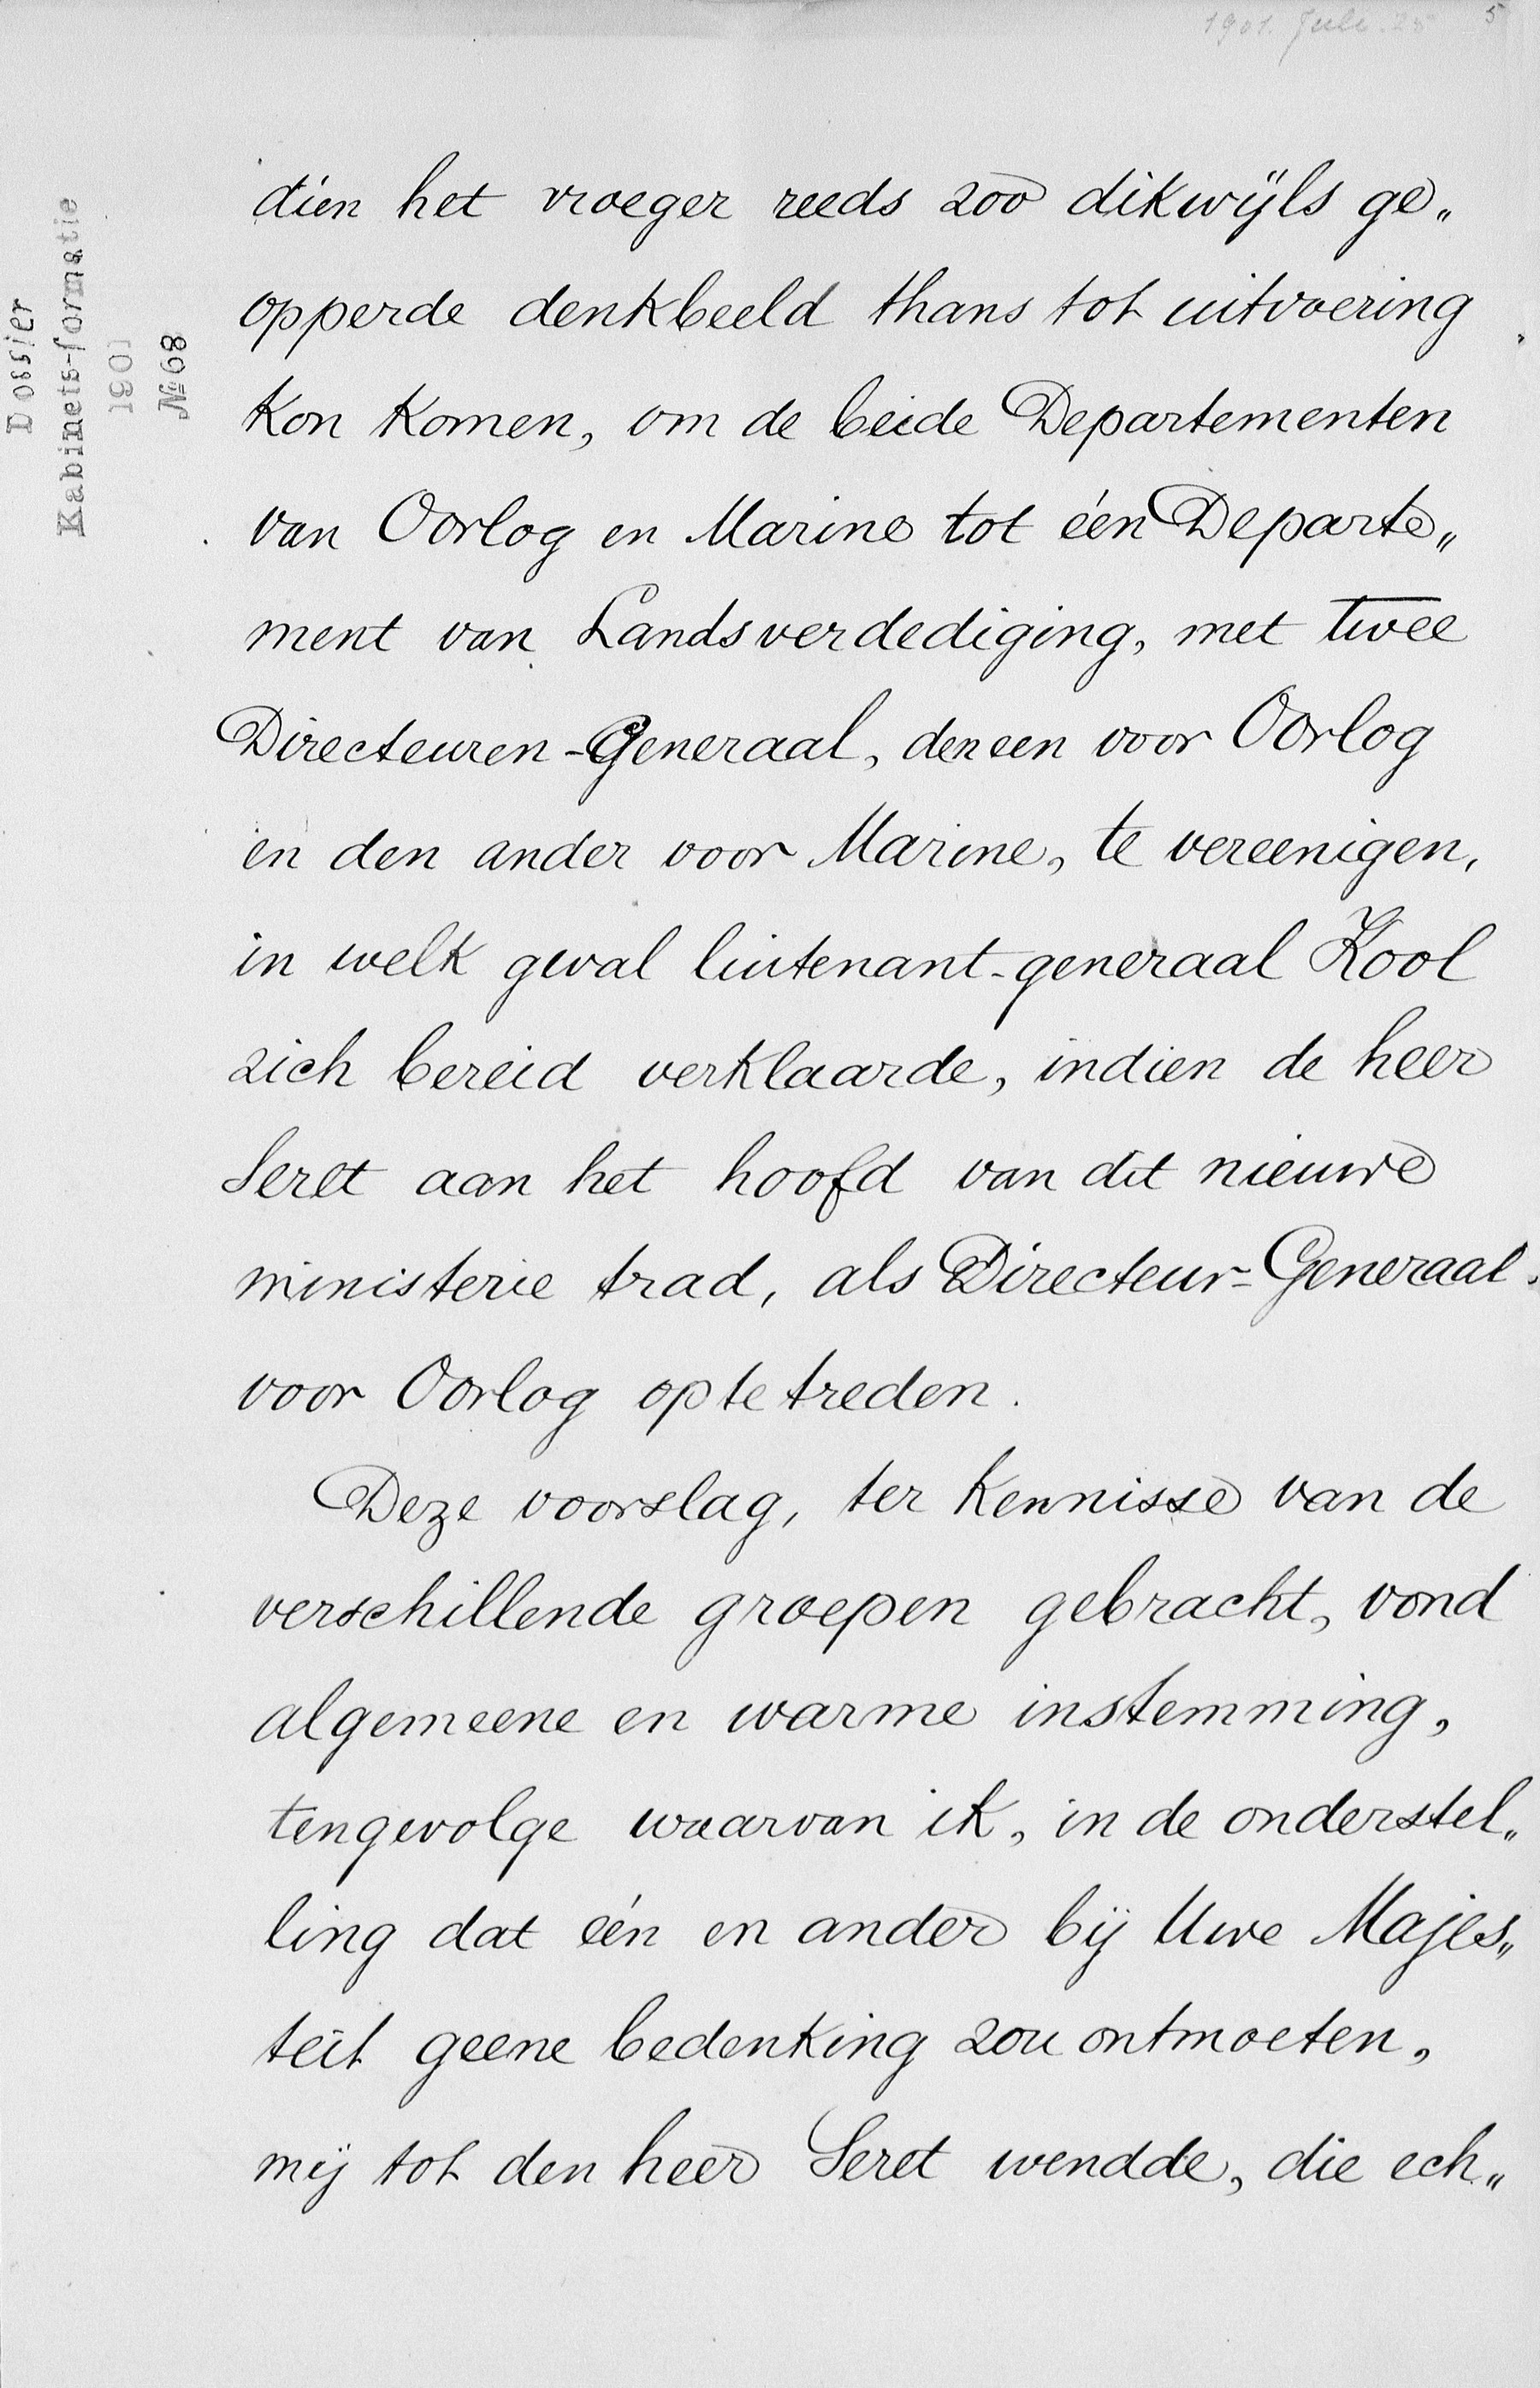 1901. Juli. 25 5
Dossier
Kabinets-formatie
1901
№ 68
dien het vroeger reeds zoo dikwijls ge„
opperde denkbeeld thans tot uitvoering
kon komen, om de beide Departementen
van Oorlog en Marine tot één Departe„
ment van Landsverdediging, met twee
Directeuren-Generaal, den een voor Oorlog
en den ander voor Marine, te vereenigen,
in welk geval luitenant-generaal Kool
zich bereid verklaarde, indien de heer
Seret aan het hoofd van dit nieuwe
ministerie trad, als Directeur-Generaal
voor Oorlog op te treden.
Deze voorslag, ter kennisse van de
verschillende groepen gebracht, vond
algemeene en warme instemming,
tengevolge waarvan ik, in de onderstel„
ling dat één en ander bij Uwe Majes„
teit geene bedenking zou ontmoeten,
mij tot den heer Seret wendde, die ech„